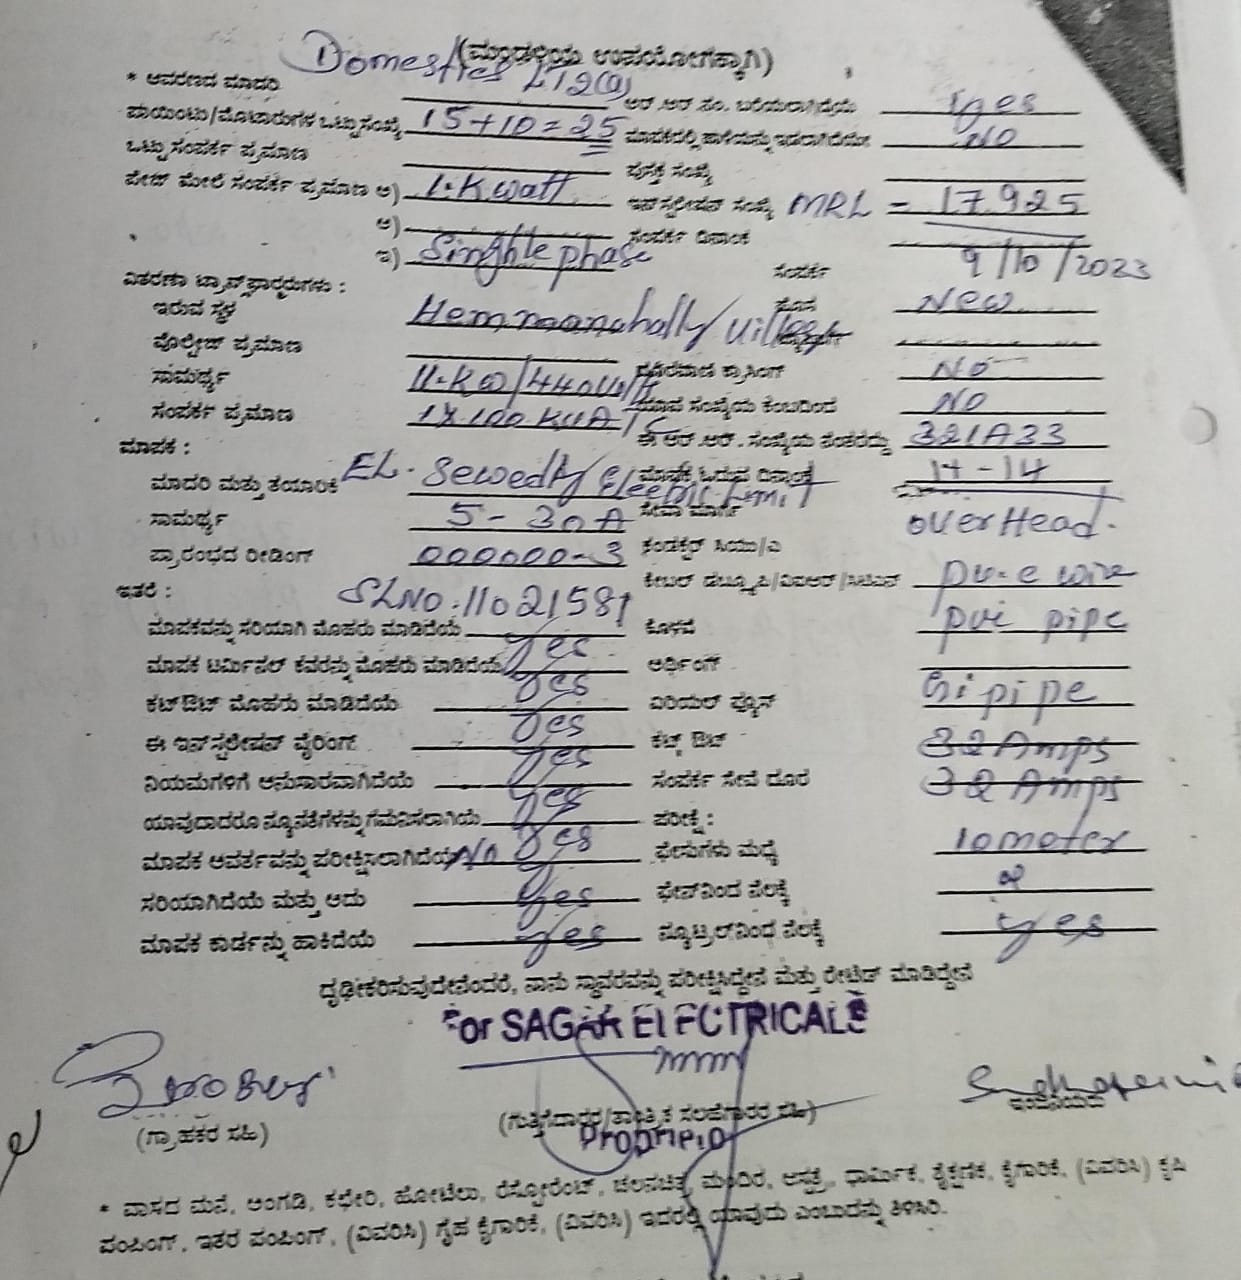 (ಮಂಡಳಿಯ ಉಪಯೋಗಕ್ಕಾಗಿ)
* ಆವರಣದ ಮಾದರಿ Domestics LT2(a) ಆರ್.ಆರ್.ಸಂ. ಬರೆಯಲಾಗಿದೆಯೆ yes
ಪಾಯಿಂಟು/ಮೋಟಾರುಗಳ ಒಟ್ಟು ಸಂಖ್ಯೆ 15+10=25 ಮಾಪಕದಲ್ಲಿ NO
ಒಟ್ಟು ಸಂಪರ್ಕ ಪ್ರಮಾಣ ಪುಸ್ತಕ ಸಂಖ್ಯೆ
ಪೇಜ್ ಮೇಲೆ ಸಂಪರ್ಕ ಪ್ರಮಾಣ ಅ) 1.Kwatt ಇನ್‌ಸ್ಟಲೇಷನ್ ಸಂಖ್ಯೆ MRL - 17925
ಆ) ಸಂಪರ್ಕ ದಿನಾಂಕ 9/10/2023
ಇ) Singhle phase ಸಂಪರ್ಕ
ವಿತರಣಾ ಟ್ರಾನ್ಸ್‌ಫಾರ್ಮರುಗಳು :
ಇರುವ ಸ್ಥಳ Hemmanahally ಹೊಸ New
ವೋಲ್ಟೇಜ್ ಪ್ರಮಾಣ
ಸಾಮರ್ಥ್ಯ ಕ್ರಾಸಿಂಗ್ NO
ಸಂಪರ್ಕ ಪ್ರಮಾಣ 1X100 KVA ಸಂಖ್ಯೆಯ ಕಂಬದಿಂದ NO
ಮಾಪಕ : ಈ ಆರ್.ಆರ್. ಸಂಖ್ಯೆಯ ನಂತರದ್ದು 321A33
ಮಾದರಿ ಮತ್ತು ತಯಾರಿಕೆ EL. Sewedy Electric Limit 14-14
ಸಾಮರ್ಥ್ಯ 5-30A ಸೇವಾ ಮಾರ್ಗ overHead.
ಪ್ರಾರಂಭದ ರೀಡಿಂಗ್ 000000-3 ಕಂಡಕ್ಟರ್ ಸಿಯು/ಎ
ಇತರೆ : SLNO.11021581 ಕೇಬಲ್
ಮಾಪಕವನ್ನು ಸರಿಯಾಗಿ ಮೊಹರು ಮಾಡಿದೆಯೆ yes ಕೊಳವೆ pvc pipe
ಮಾಪಕ ಟರ್ಮಿನಲ್ ಕವರನ್ನು ಮೊಹರು ಮಾಡಿದೆಯೆ yes ಅರ್ಥಿಂಗ್
ಕಟ್‌ಔಟ್ ಮೊಹರು ಮಾಡಿದೆಯೆ yes ಏರಿಯಲ್ ಫ್ಯೂಸ್ Gi pipe
ಈ ಇನ್‌ಸ್ಟಲೇಷನ್ ವೈರಿಂಗ್ yes ಕಟ್ ಔಟ್ 32 Amps
ನಿಯಮಗಳಿಗೆ ಅನುಸಾರವಾಗಿದೆಯೆ yes ಸಂಪರ್ಕ ಸೇವೆ ದೂರ 32 Amps
ಯಾವುದಾದರೂ ನ್ಯೂನತೆಗಳನ್ನು ಗಮನಿಸಲಾಗಿಯೆ ಪರೀಕ್ಷೆ :
ಮಾಪಕ ಆವರ್ತವನ್ನು ಪರೀಕ್ಷಿಸಲಾಗಿದೆಯೆ No yes ಫೇಸುಗಳು ಮಧ್ಯೆ 10 meter
ಸರಿಯಾಗಿದೆಯೆ ಮತ್ತು ಅದು yes ಫೇಸ್‌ನಿಂದ ನೆಲಕ್ಕೆ 2
ಮಾಪಕ ಕಾರ್ಡನ್ನು ಹಾಕಿದೆಯೆ yes ನ್ಯೂಟ್ರಲ್‌ನಿಂದ ನೆಲಕ್ಕೆ yes
ದೃಢೀಕರಿಸುವುದೇನೆಂದರೆ, ನಾನು ಸ್ಥಾವರವನ್ನು ಪರೀಕ್ಷಿಸಿದ್ದೇನೆ ಮತ್ತು ರೇಟೆಡ್ ಮಾಡಿದ್ದೇನೆ
For SAGAR ELECTRICALS
(ಗ್ರಾಹಕರ ಸಹಿ) (ಗುತ್ತಿಗೆದಾರರ/ತಾಂತ್ರಿಕ ಸಲಹೆಗಾರರ ಸಹಿ)
* ವಾಸದ ಮನೆ, ಅಂಗಡಿ, ಕಛೇರಿ, ಹೋಟೆಲು, ರೆಸ್ಟೋರೆಂಟ್, ಚಲನಚಿತ್ರ ಮಂದಿರ, ಆಸ್ಪತ್ರೆ, ಧಾರ್ಮಿಕ, ಶೈಕ್ಷಣಿಕ, ಕೈಗಾರಿಕೆ, (ವಿವರಿಸಿ) ಕೃಷಿ
ಪಂಪಿಂಗ್, ಇತರ ಪಂಪಿಂಗ್, (ವಿವರಿಸಿ) ಗೃಹ ಕೈಗಾರಿಕೆ, (ವಿವರಿಸಿ) ಇದರಲ್ಲಿ ಯಾವುದು ಎಂಬುದನ್ನು ತಿಳಿಸಿರಿ.